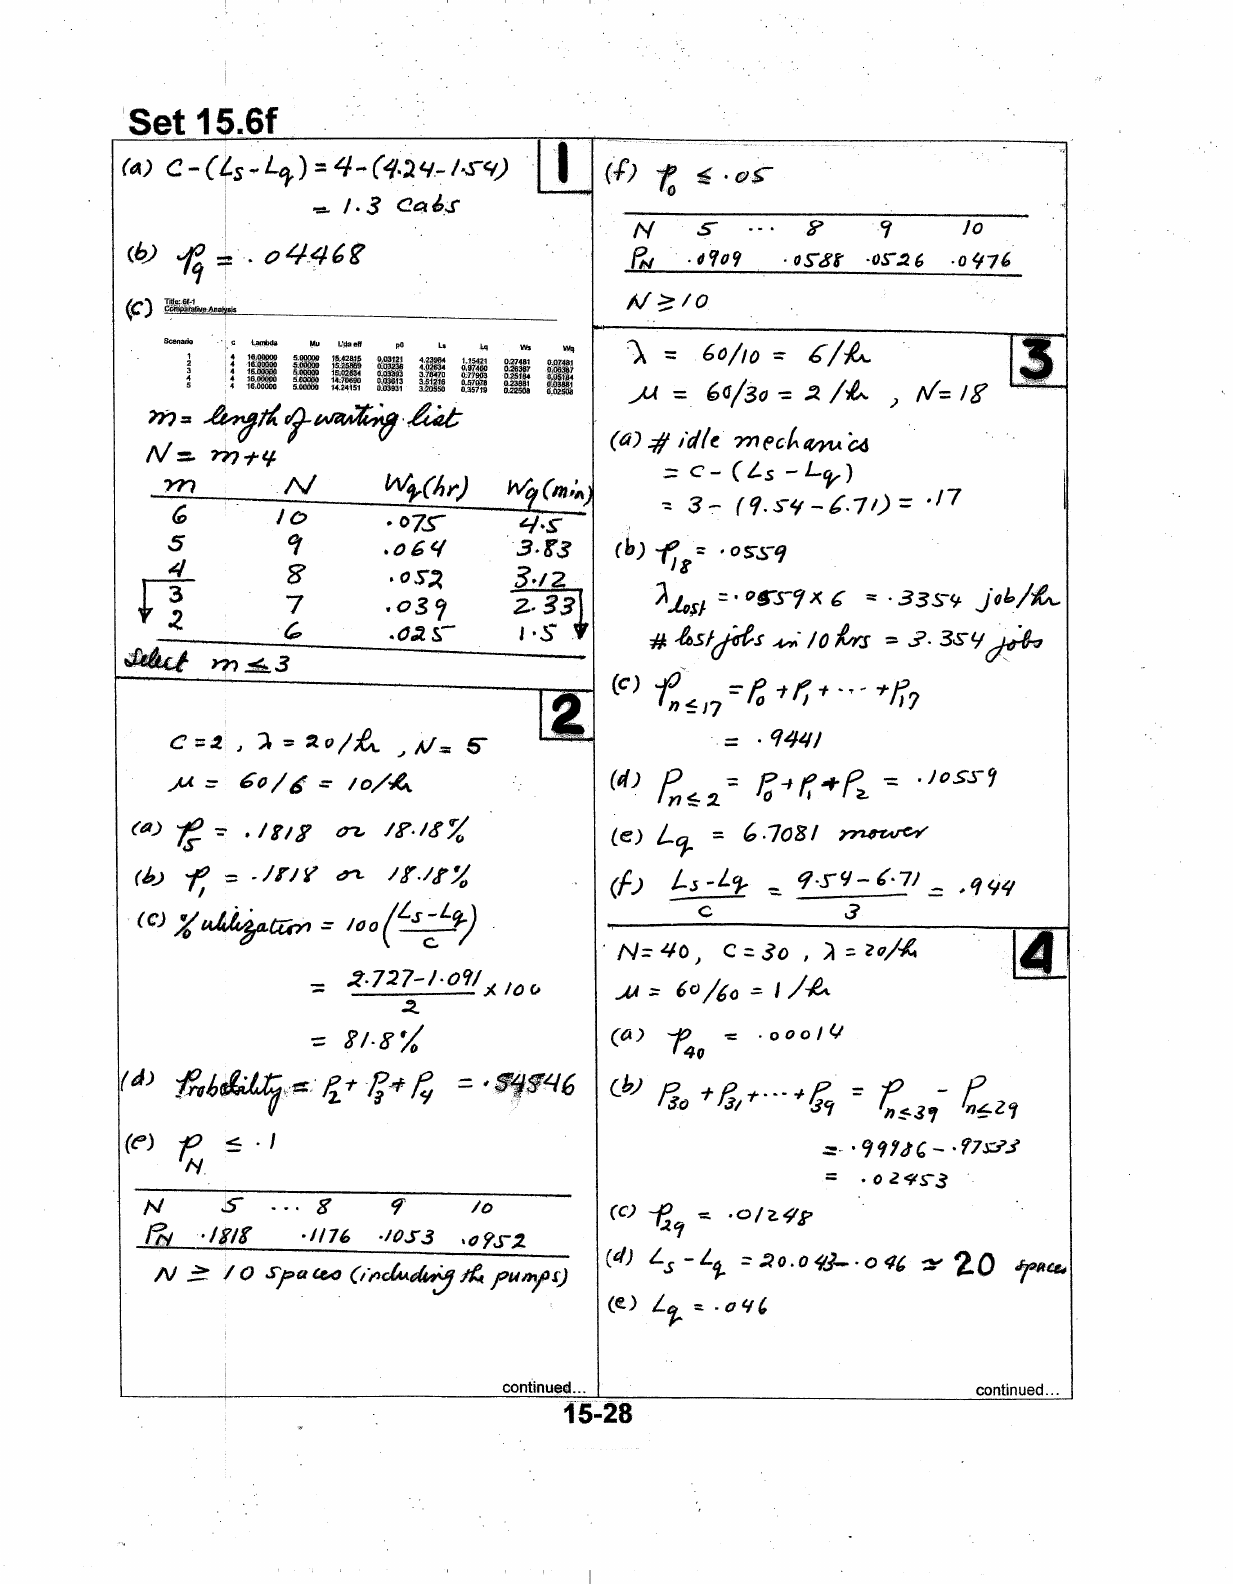 Set 15.6f
1
(a) C-(Ls-Lq) = 4-(4.24-1.54)
= 1.3 Cabs
(b) p9 = .04468
(c) Title: 6f-1
Comparative Analysis
Scenario c Lambda Mu L'da eff p0 Ls Lq Ws Wq
1 4 16.00000 5.00000 15.42815 0.03121 4.23984 1.15421 0.27481 0.07481
2 4 16.00000 5.00000 15.25869 0.03236 4.02634 0.97460 0.26387 0.06387
3 4 16.00000 5.00000 15.02834 0.03393 3.78470 0.77903 0.25184 0.05184
4 4 16.00000 5.00000 14.70690 0.03613 3.51216 0.57078 0.23881 0.03881
5 4 16.00000 5.00000 14.24151 0.03931 3.20550 0.35719 0.22508 0.02508
m = length of waiting list
N = m+4
m N Wq(hr) Wq(min)
6 10 .075 4.5
5 9 .064 3.83
4 8 .052 3.12
3 7 .039 2.33
2 6 .025 1.5
Select m ≤ 3
2
C=2, λ = 20/hr, N = 5
μ = 60/6 = 10/hr
(a) p5 = .1818 or 18.18%
(b) p1 = .1818 or 18.18%
(c) % utilization = 100 ((Ls-Lq)/c)
= (2.727-1.091)/2 x 100
= 81.8%
(d) Probability = P2 + P3 + P4 = .54546
(e) pN ≤ .1
N 5 ... 8 9 10
PN .1818 .1176 .1053 .0952
N ≥ 10 spaces (including the pumps)
continued...
(f) p0 ≤ .05
N 5 ... 8 9 10
PN .0909 .0588 .0526 .0476
N ≥ 10
3
λ = 60/10 = 6/hr
μ = 60/30 = 2/hr, N=18
(a) # idle mechanics
= c - (Ls - Lq)
= 3 - (9.54-6.71) = .17
(b) p18 = .0559
λlost = .0559 x 6 = .3354 job/hr
# lost jobs in 10 hrs = 3.354 jobs
(c) pn≤17 = P0 + P1 + ... + P17
= .9441
(d) Pn≤2 = P0 + P1 + P2 = .10559
(e) Lq = 6.7081 mower
(f) (Ls-Lq)/c = (9.54-6.71)/3 = .944
4
N=40, C=30, λ=20/hr
μ = 60/60 = 1/hr
(a) p40 = .00014
(b) P30 + P31 + ... + P39 = Pn≤39 - Pn≤29
= .99986 - .97533
= .02453
(c) p29 = .01248
(d) Ls - Lq = 20.043-.046 ≃ 20 spaces
(e) Lq = .046
continued...
15-28